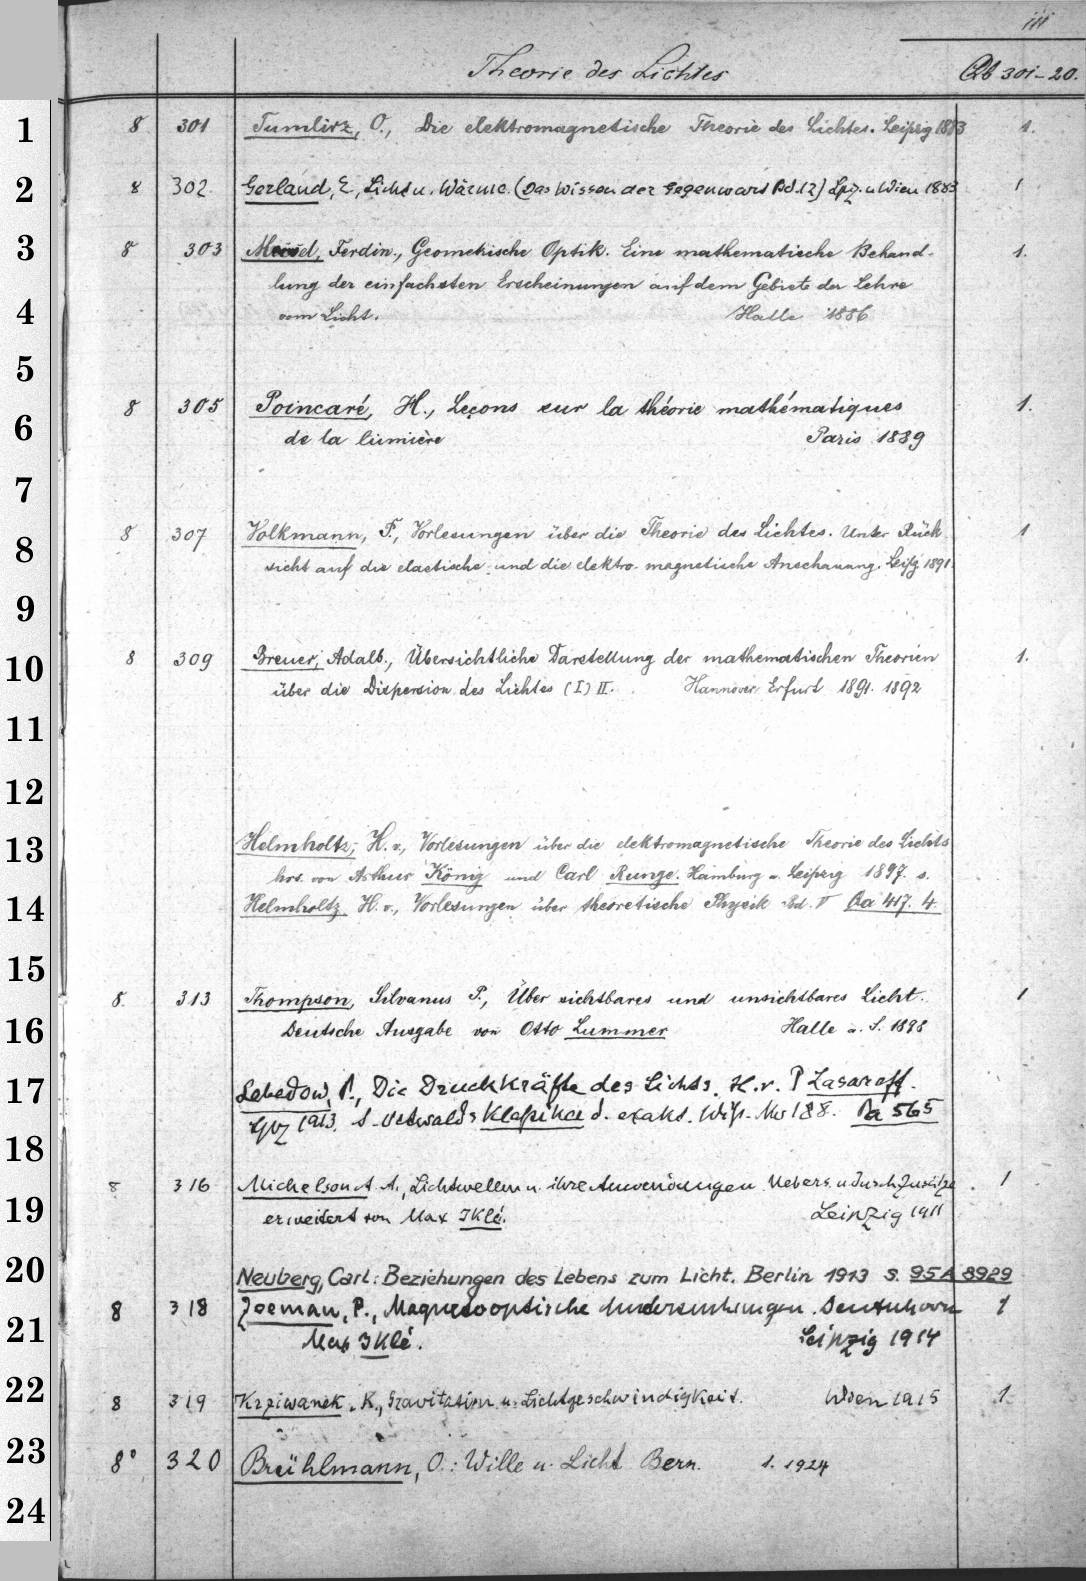 iii
Theorie des Lichtes Qb 301-20.
1 8 301 Tumlirz, O., Die elektromagnetische Theorie des Lichtes. Leipzig 1883 1.
2 8 302 Gerland, E., Licht u. Wärme. (Das Wissen der Gegenwart Bd. 12) Lpz. u Wien 1883 1
3 8 303 Meisel, Ferdin., Geometrische Optik. Eine mathematische Behand- 1.
lung der einfachsten Erscheinungen auf dem Gebiete der Lehre
4 vom Licht. Halle 1886
5
8 305 Poincaré, H., Leçons sur la théorie mathématiques 1.
6 de la lumière Paris 1889
7
8 307 Volkmann, P., Vorlesungen über die Theorie des Lichtes. Unter Rück 1
8 sicht auf die elastische und die elektro-magnetische Anschauung. Leipz. 1891.
9
8 309 Breuer, Adalb., Übersichtliche Darstellung der mathematischen Theorien 1.
10 über die Dispersion des Lichtes (I) II. Hannover. Erfurt 1891. 1892
11
12
13 Helmholtz, H. v., Vorlesungen über die elektromagnetische Theorie des Lichts
hrs. von Arthur König und Carl Runge. Hamburg u. Leipzig 1897. s.
14 Helmholtz, H. v., Vorlesungen über theoretische Physik Bd. V Qa 417. 4.
15
8. 313 Thompson, Silvanus P., Über sichtbares und unsichtbares Licht. 1
16 Deutsche Ausgabe von Otto Lummer Halle a. S. 1898
17 Lebedow, P., Die Druckkräfte des Lichts. H. v. P Lasareff.
Lpz 1913. s. Ostwalds Klassiker d. exakt. Wiss. No 188. Pa 565
18
8 316 Michelson A. A., Lichtwellen u. ihre Anwendungen Uebers. u durch Zusätze 1
19 erweitert von Max Iklé. Leipzig 1911
20 Neuberg, Carl: Beziehungen des Lebens zum Licht. Berlin 1913 s. 95 A 8929
8 318 Zeeman, P., Magnetooptische Untersuchungen. Deutsch von 1
21 Max Iklé. Leipzig 1914
22 8 319 Krziwanek, K., Gravitation u. Lichtgeschwindigkeit. Wien 1915 1
23 8° 320 Brühlmann, O.: Wille u. Licht Bern. 1. 1924
24